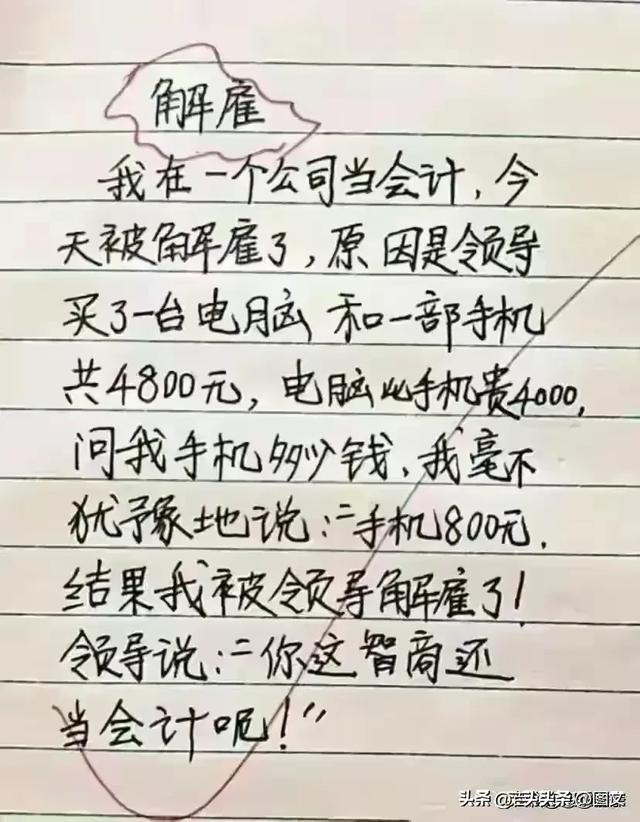 解雇
我在一个公司当会计，今
天被解雇了，原因是领导
买了一台电脑和一部手机
共4800元，电脑比手机贵4000，
问我手机多少钱、我毫不
犹豫地说：“手机800元，
结果我被领导解雇了！
领导说：“你这智商还
当会计呢！”
头条